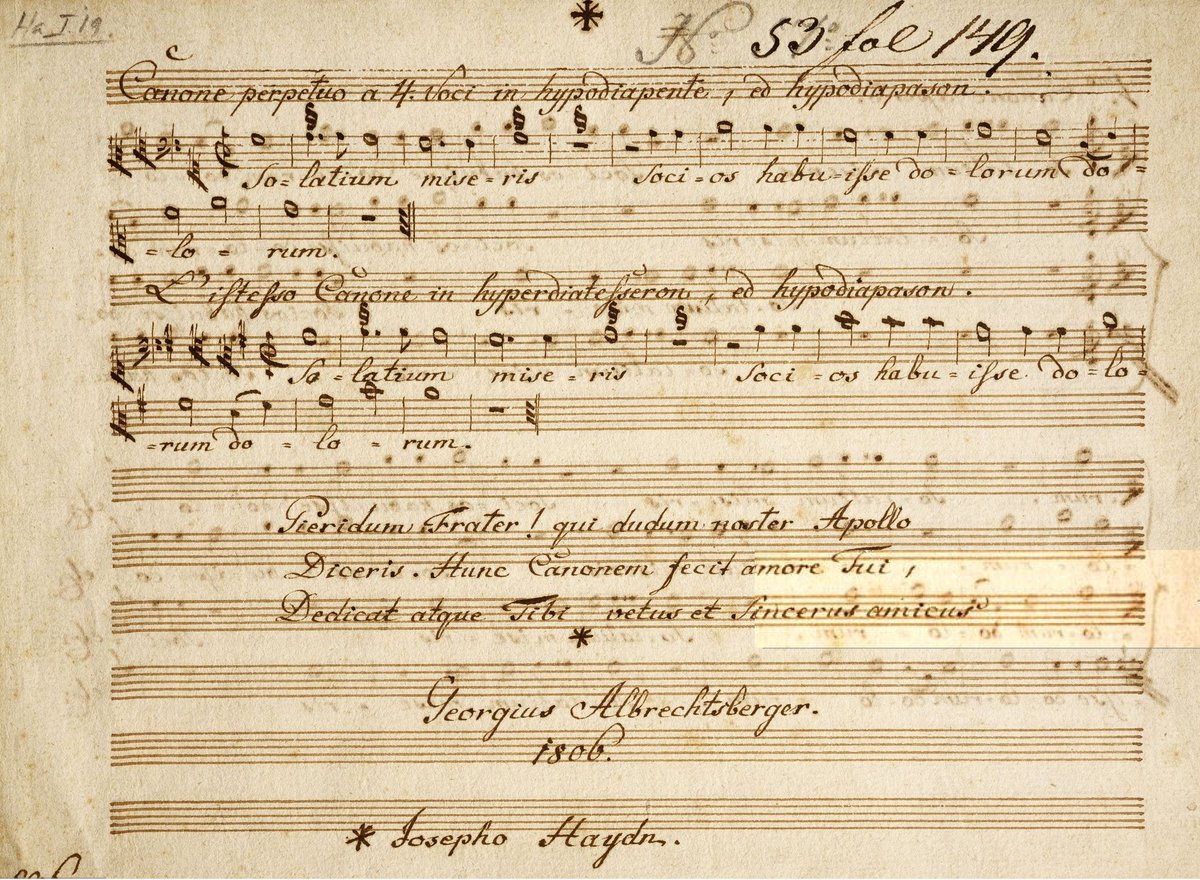 Ha I. 19.
No 53 fol 149.
Canone perpetuo a 4. Voci in hypodiapente, ed hypodiapason.
So=latium mise=ris Soci=os habu=isse do=lorum do=
=lo=rum.
L'istesso Canone in hyperdiatesseron, ed hypodiapason.
So=latium mise=ris Soci=os habu=isse do=lo=
=rum do=lo=rum.
Pieridum Frater! qui dudum noster Apollo
Diceris. Hunc Canonem fecit amore Tui,
Dedicat atque Tibi vetus et sincerus amicus
*
Georgius Albrechtsberger.
1806.
* Josepho Haydn.